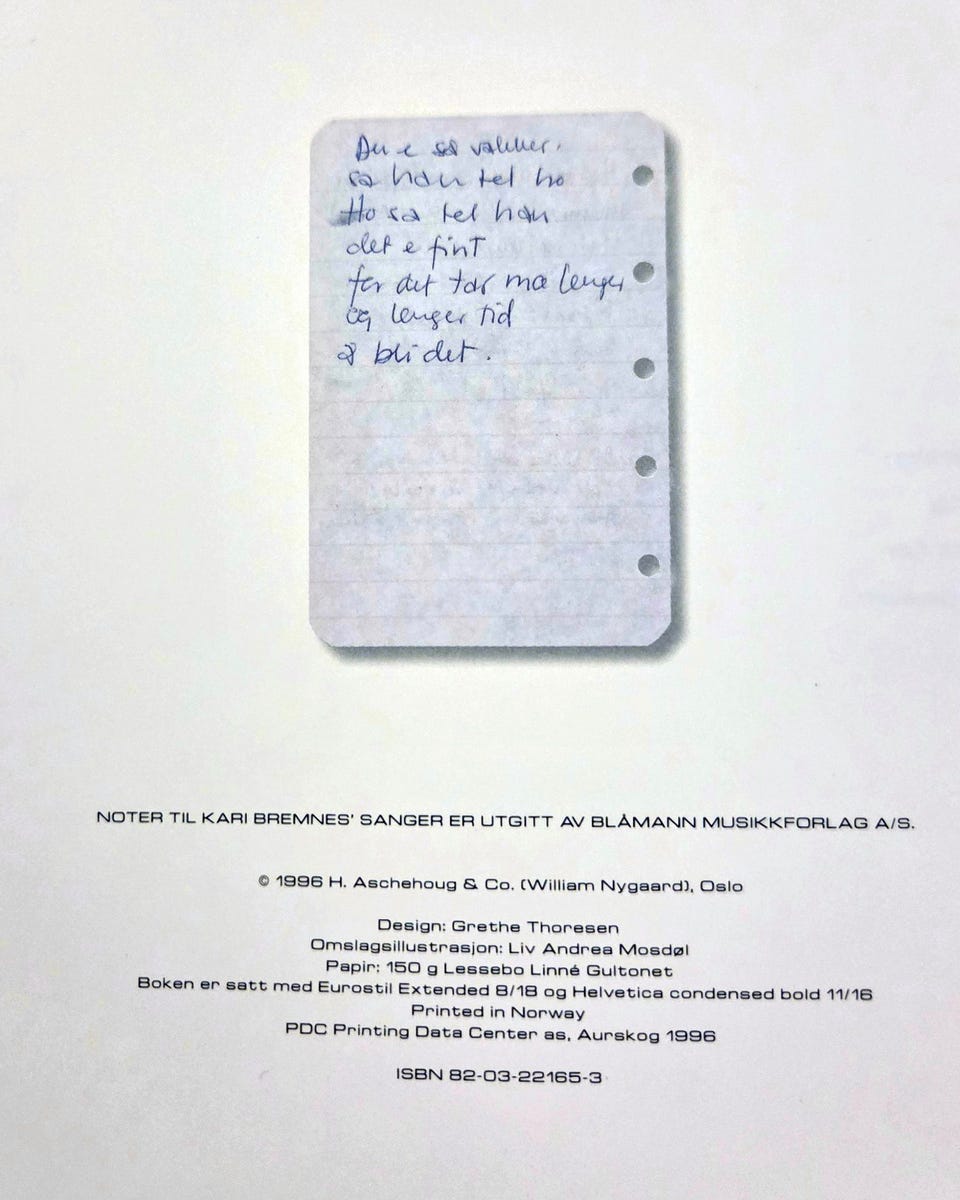 Du e så vakker,
sa han tel ho
Ho sa tel han
det e fint
for det tar mæ lenger
og lenger tid
å bli det.
NOTER TIL KARI BREMNES' SANGER ER UTGITT AV BLÅMANN MUSIKKFORLAG A/S.
© 1996 H. Aschehoug & Co. (William Nygaard), Oslo
Design: Grethe Thoresen
Omslagsillustrasjon: Liv Andrea Mosdøl
Papir: 150 g Lessebo Linné Gultonet
Boken er satt med Eurostil Extended 8/18 og Helvetica condensed bold 11/16
Printed in Norway
PDC Printing Data Center as, Aurskog 1996
ISBN 82-03-22165-3